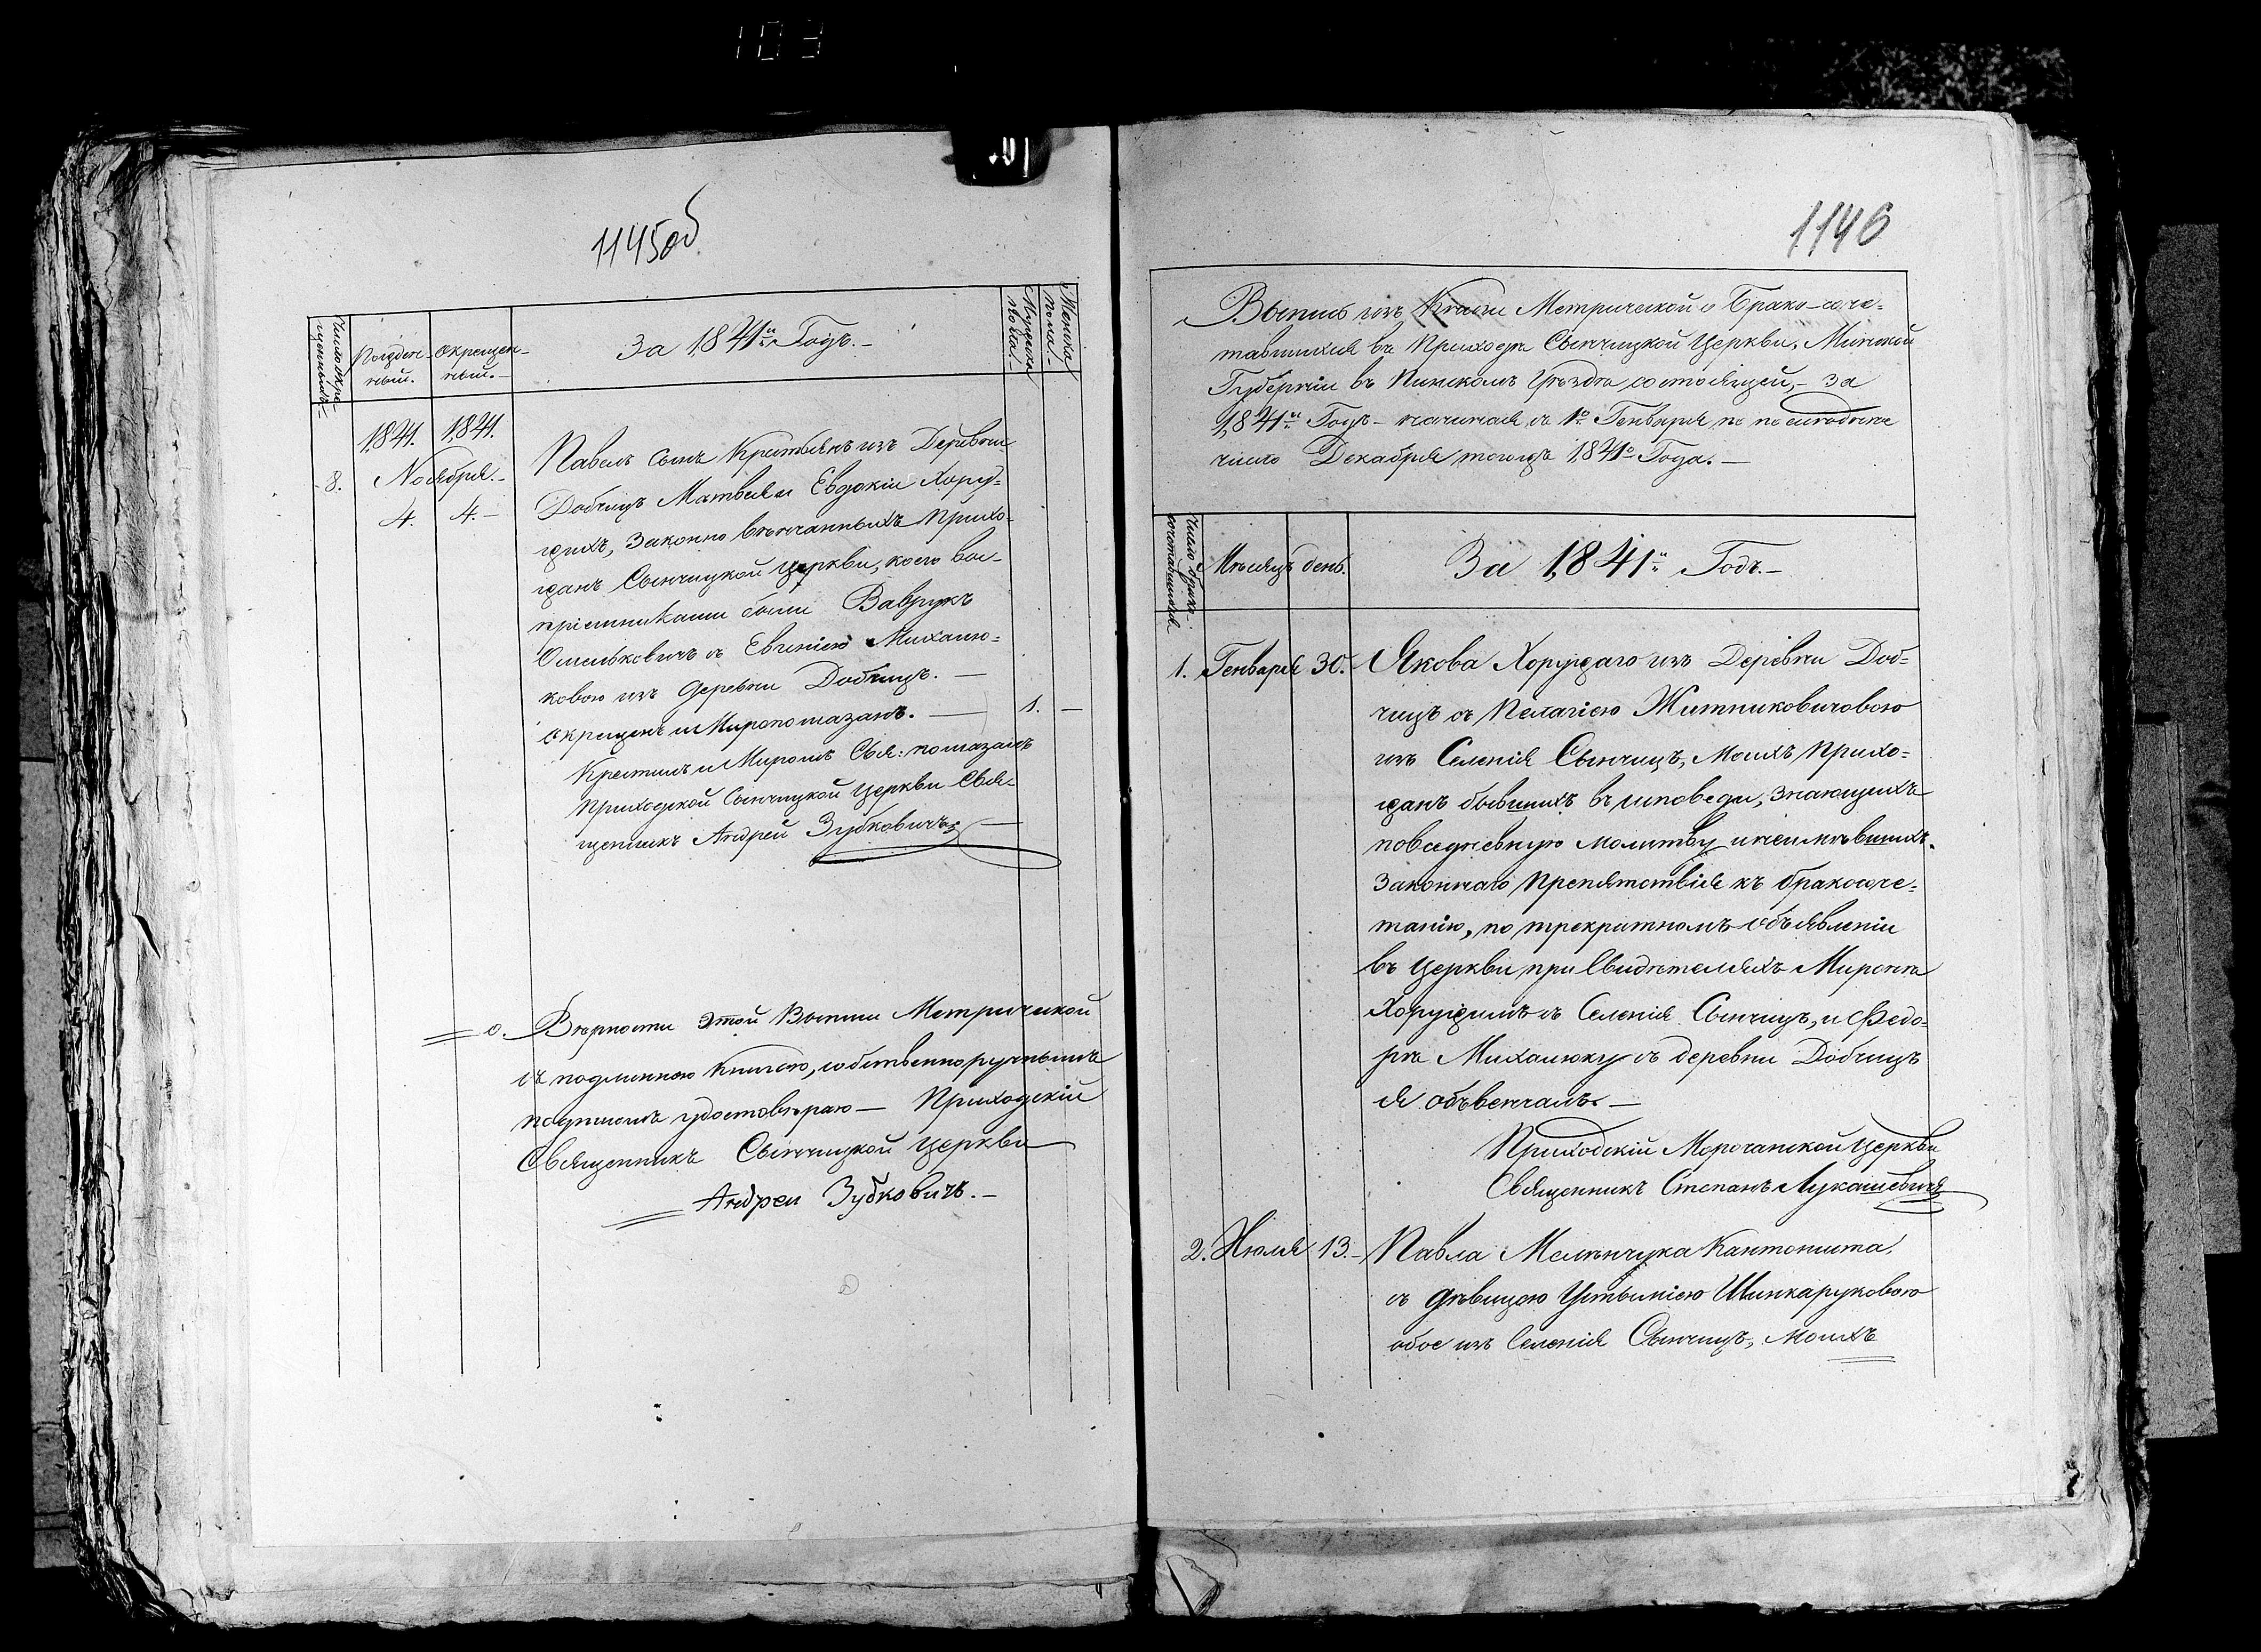 103
1145об
Число окре-
щенныхъ.
Рожден-
ный.
Окрещен-
ный.
За 1841й Годъ.
Мужеска
пола.
Женска
пола.
1841. 1841.
8. Ноября.
4. 4.
Павелъ сынъ Крестьянъ изъ Деревни
Добчицъ Матвея и Евдокіи Хору-
жихъ, Законно вѣнчанныхъ Прихо-
жанъ Сынчицкой Церкви, коего вос-
пріемниками были Ваврукъ
Омельковичъ съ Евгеніею Михалю-
ковою изъ Деревни Добчицъ.
окрещенъ и Миропомазанъ. 1.
Крестилъ и Миромъ Свя: помазалъ
Приходской Сынчицкой Церкви Свя-
щенникъ Андрей Зубковичъ
О. Вѣрности этой Выписи Метрической
съ подлинною Книгою, собственноручнымъ
подписомъ удостовѣряю — Приходскій
Священникъ Сынчицкой Церкви
Андреи Зубковичъ.
1146
Выпись изъ Книги Метрической о Брако-соче-
тавшихся въ Приходѣ Сынчицкой Церкви, Минской
Губерніи въ Пинскомъ Уѣздѣ состоящей, за
1841й Годъ — начиная съ 1о Генваря по
число Декабря тогожъ 1841о Года.
Число брако-
сочетавшихся
Мѣсяцъ день.
За 1841й Годъ.
1. Генваря 30. Якова Хоружаго изъ Деревни Доб-
чицъ съ Пелагіею Житниковичовою
изъ Селенія Сынчицъ, Моихъ Прихо-
жанъ бывшихъ въ исповеди, Знающихъ
повседневную молитву и неимѣвшихъ
Законнаго препятствія къ бракосоче-
танію, по трекратномъ объявленіи
въ Церкви при Свидѣтеляхъ Миронѣ
Хоружимъ съ Селенія Сынчицъ, и Федо-
рѣ Михалюку съ деревни Добчицъ
я объвенчалъ.
Приходскій Морочанской Церкви
Священникъ Степанъ Лукашевичъ
2. Июля 13. Павла Мельнчука Кантониста,
съ дѣвицою Устиніею Шинкаруковою
обое изъ Селенія Сынчицъ, моихъ